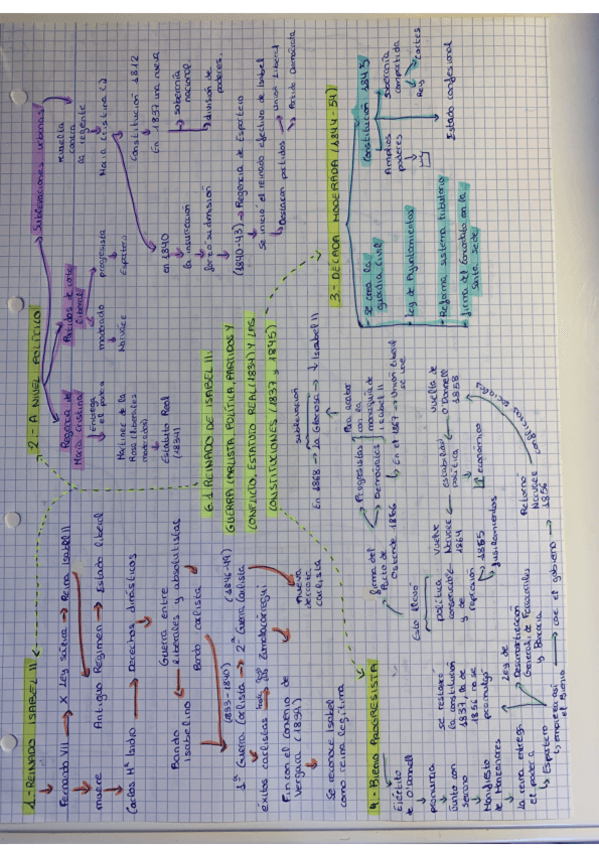 6.1 REINADO DE ISABEL II:
GUERRA CARLISTA, POLÍTICA, PARTIDOS Y
CONFLICTO, ESTATUTO REAL (1834) Y LAS
CONSTITUCIONES (1837 y 1845)
1.- REINADO ISABEL II
Fernando VII → X Ley sálica → Reina Isabel II
muere
Antiguo Régimen → Estado liberal
Carlos Mª Isidro → Derechos dinásticos
Guerra entre
liberales y absolutistas
Bando
isabelino
Bando carlista
(1833-1840)
(1846-49)
1ª Guerra Carlista → 2ª Guerra Carlista
éxitos carlistas
Zumalacárregui
nueva
derrota
carlista
Fin con el convenio de
Vergara (1839)
Se reconoce Isabel
como reina legítima
2.- A NIVEL POLÍTICO
Regencia de
María Cristina
Entrega
el poder
Martínez de la
Rosa (liberales
moderados)
Estatuto Real
(1834)
Partidos de corte
liberal
moderado
progresista
Narváez
Espartero
Sublevaciones urbanas
revuelta
contra
la regente
María Cristina
Constitución 1812
En 1837 una nueva
Soberanía
nacional
división de
poderes.
en 1840
la insurrección
forzó su dimisión
(1840-43) → Regencia de Espartero
Se inició el reinado efectivo de Isabel
Destacan partidos → Unión Liberal
Partido Demócrata
3.- DÉCADA MODERADA (1844-54)
- Se crea la
guardia civil
- Ley de Ayuntamientos
- Reforma sistema tributario
- firma del Concordato con la
Santa Sede
Constitución 1845
Amplios
poderes
Soberanía
compartida
Rey
Cortes
Estado confesional
4.- BIENIO PROGRESISTA
Ejército
de O'Donnell
pronuncia
junto con
Serrano
Manifiesto
de Manzanares
La reina entrega
el poder a
Espartero
se restauró
la constitución
1837, la de
1856 no se
promulgó
Ley de
Desamortización
General, de Ferrocarriles
y Bancaria
cae el gobierno
Retorno
Narváez
1856
Vuelta de
O'Donnell
1858
estabilidad
política
económico
Vuelve
Narváez
1864
política
conservadora
y de
represión
1865
fusilamientos
Esto llevó
firma del
Pacto de
Ostende 1866
Progresistas
Demócratas
Pra acabar
con la
monarquía de
Isabel II
En el 1867 → Unión Liberal
se une
sublevación
En 1868 → La Gloriosa → ↓ Isabel II